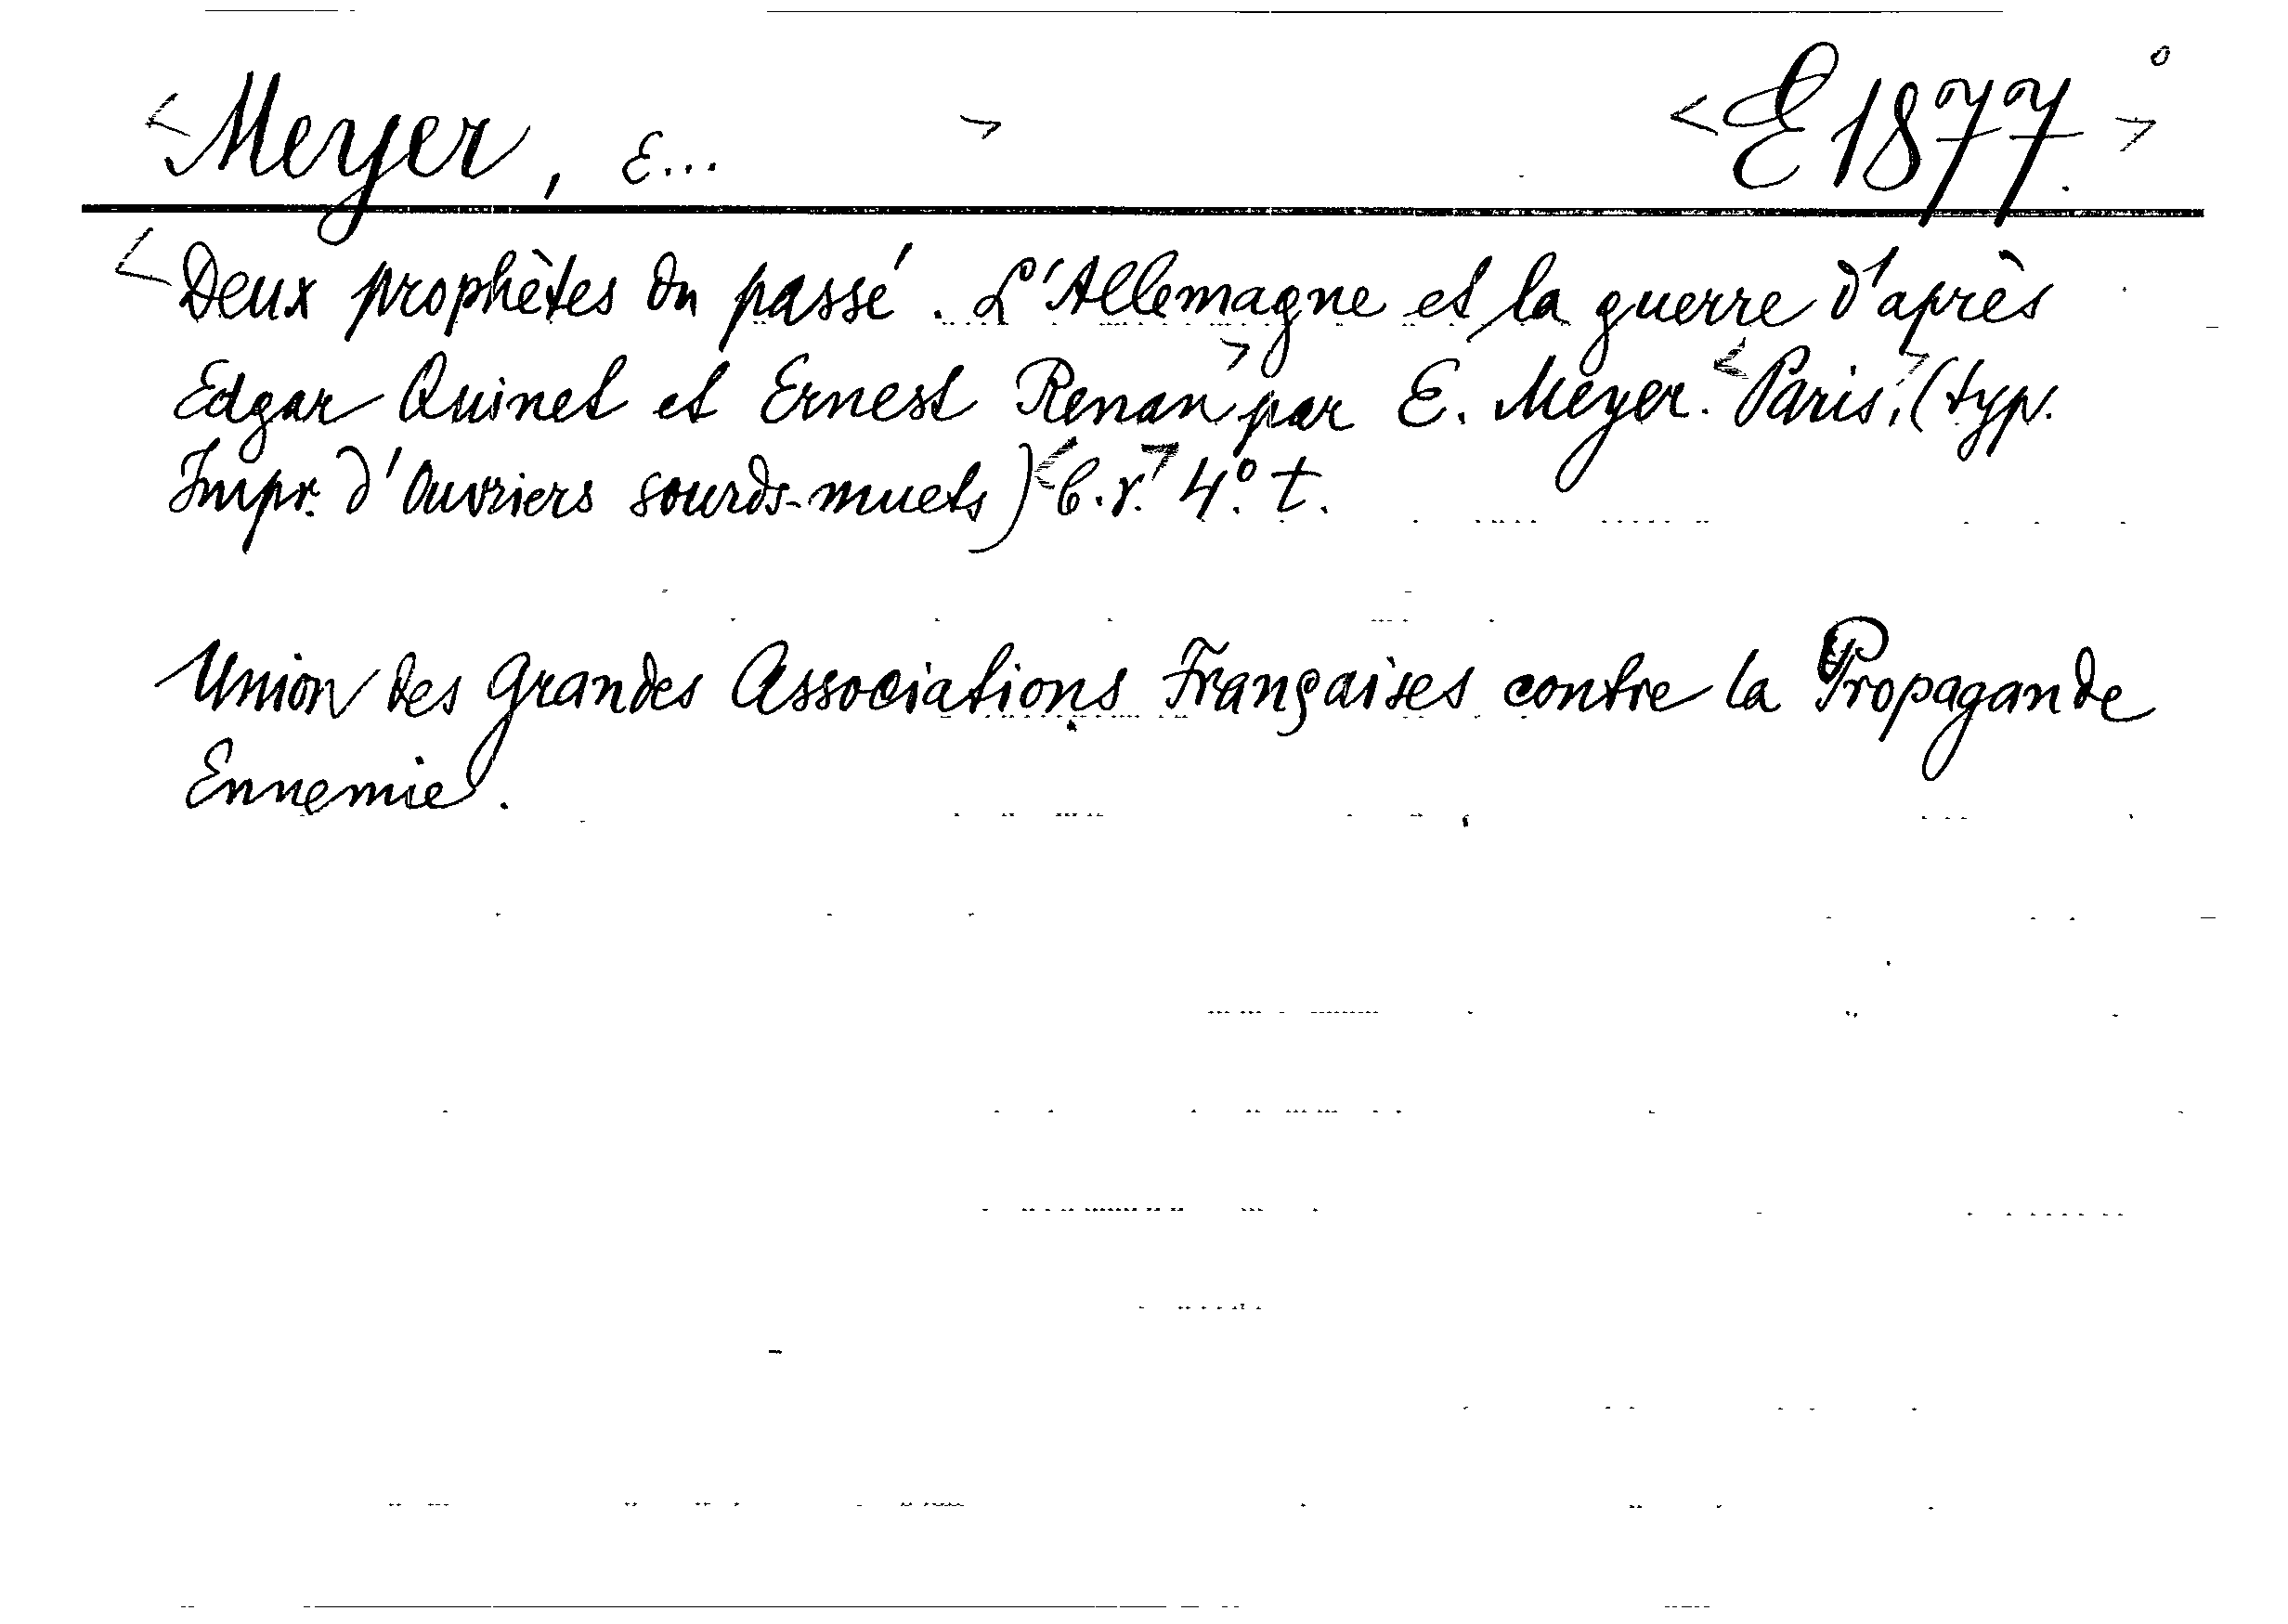 <Meyer, E...> <E 1877.°>
<Deux prophètes du passé. L'Allemagne et la guerre d'après
Edgar Quinet et Ernest Renan> par E. Meyer. <Paris,> (typ.
Impr. d'Ouvriers sourds-muets) <b.r.> 4°. t.
Union des Grandes Associations Françaises contre la Propagande
Ennemie.